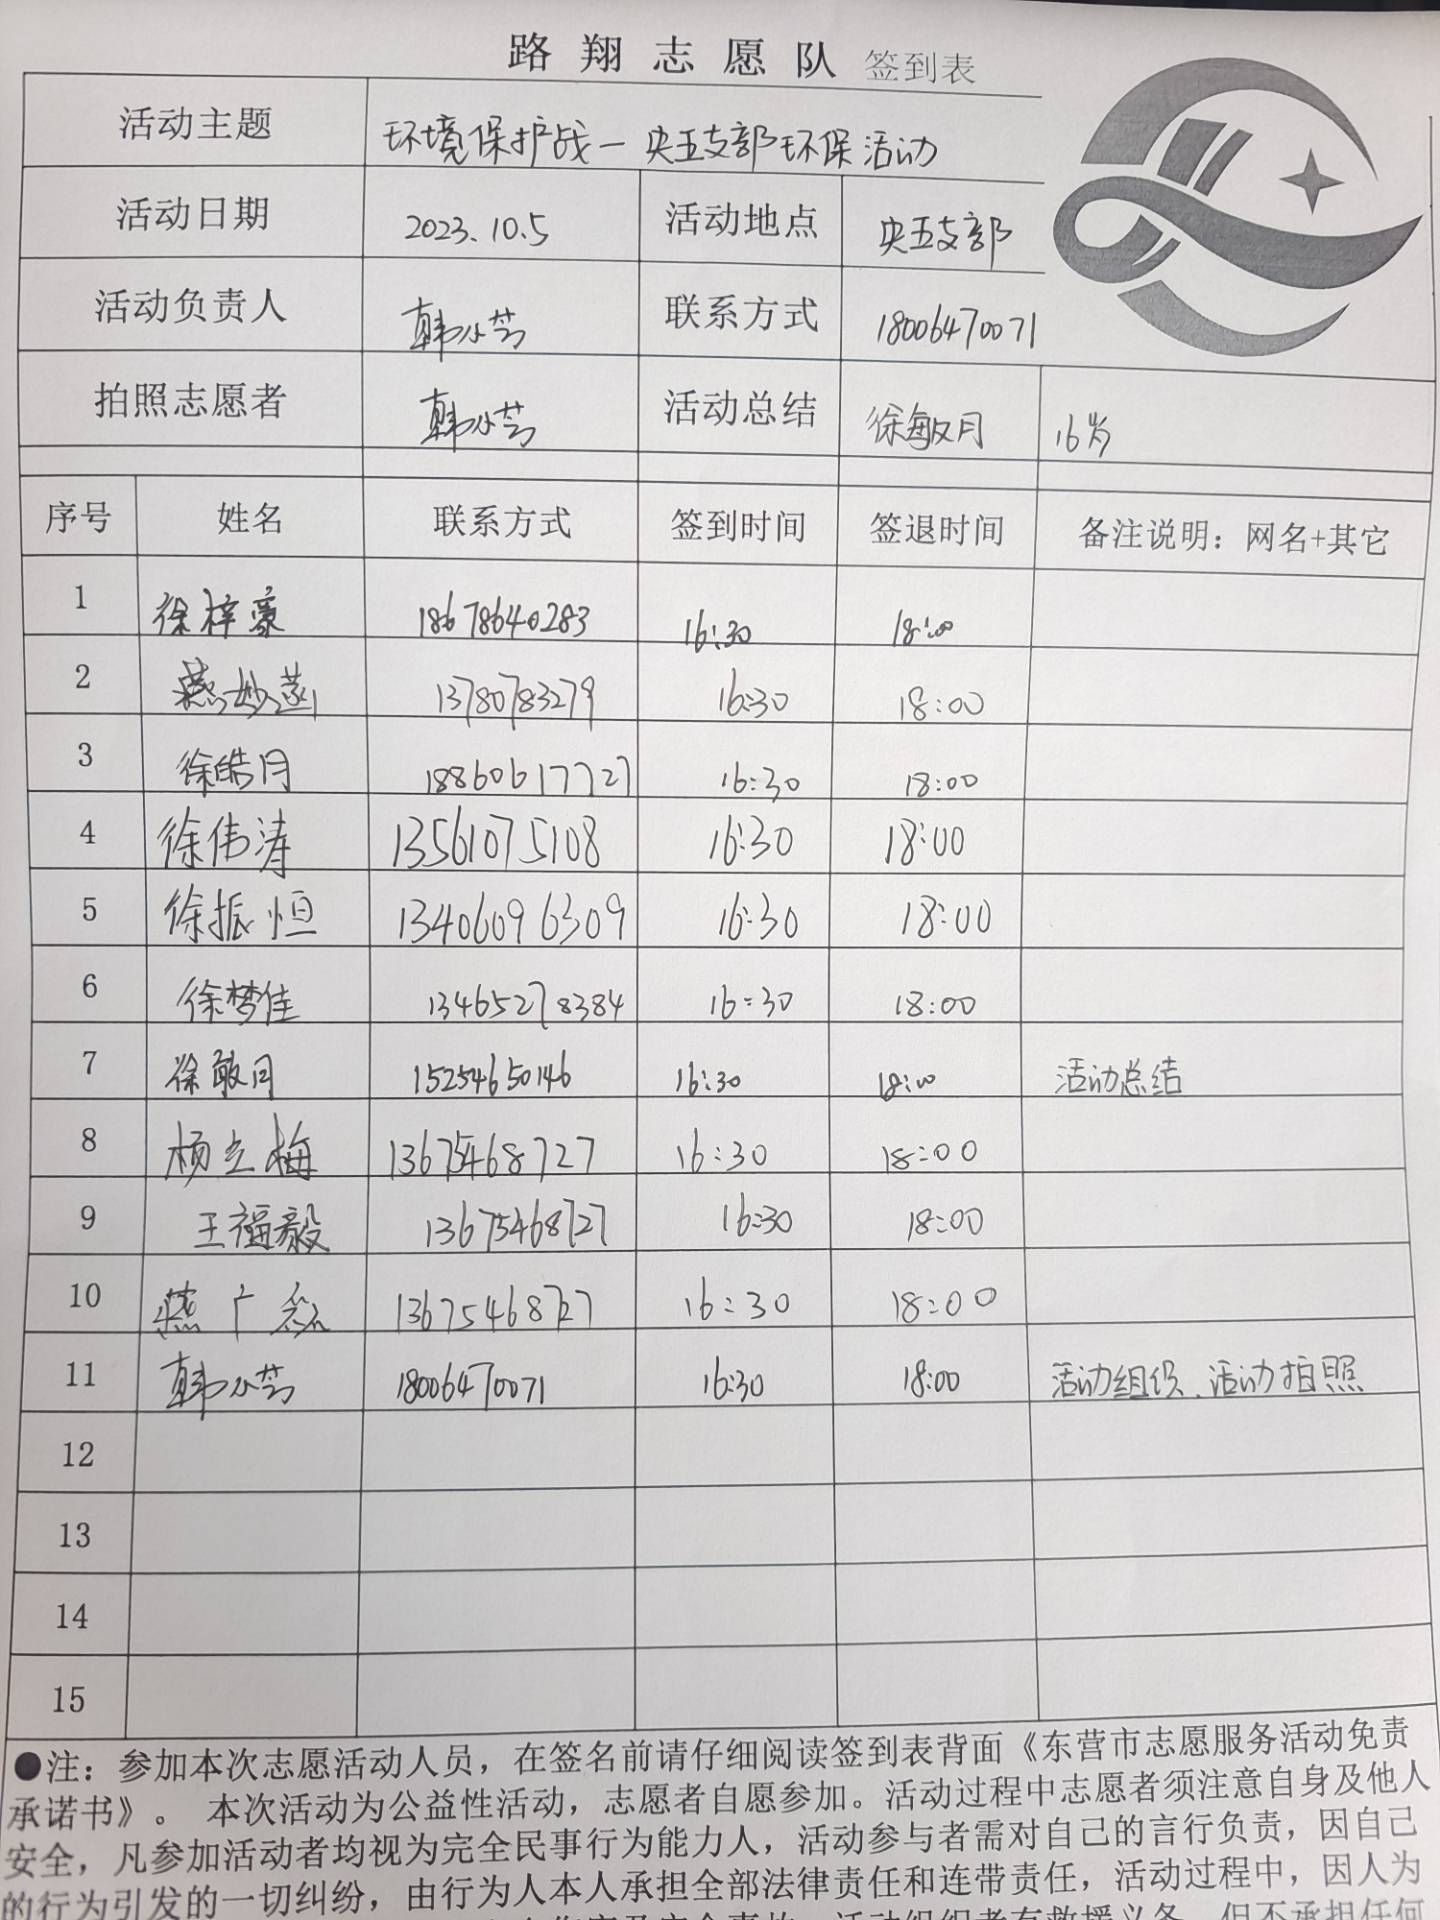 路翔志愿队 签到表
活动主题 环境保护战一央五支部环保活动
活动日期 2023.10.5 活动地点 央五支部
活动负责人 韩小芳 联系方式 18006470071
拍照志愿者 韩小芳 活动总结 徐敏月 16岁
序号 姓名 联系方式 签到时间 签退时间 备注说明：网名+其它
1 徐梓豪 18678640283 16:30 18:00
2 燕妙菡 13780783279 16:30 18:00
3 徐皓月 18860617727 16:30 18:00
4 徐伟涛 13561075108 16:30 18:00
5 徐振恒 13406096309 16:30 18:00
6 徐梦佳 13465278384 16:30 18:00
7 徐敏月 15254650146 16:30 18:00 活动总结
8 杨立梅 13675468727 16:30 18:00
9 王福毅 13675468727 16:30 18:00
10 燕广 13675468727 16:30 18:00
11 韩小芳 18006470071 16:30 18:00 活动组织、活动拍照
12
13
14
15
●注：参加本次志愿活动人员，在签名前请仔细阅读签到表背面《东营市志愿服务活动免责
承诺书》。 本次活动为公益性活动，志愿者自愿参加。活动过程中志愿者须注意自身及他人
安全，凡参加活动者均视为完全民事行为能力人，活动参与者需对自己的言行负责，因自己
的行为引发的一切纠纷，由行为人本人承担全部法律责任和连带责任，活动过程中，因人为
活动组织者有救援义务，但不承担任何